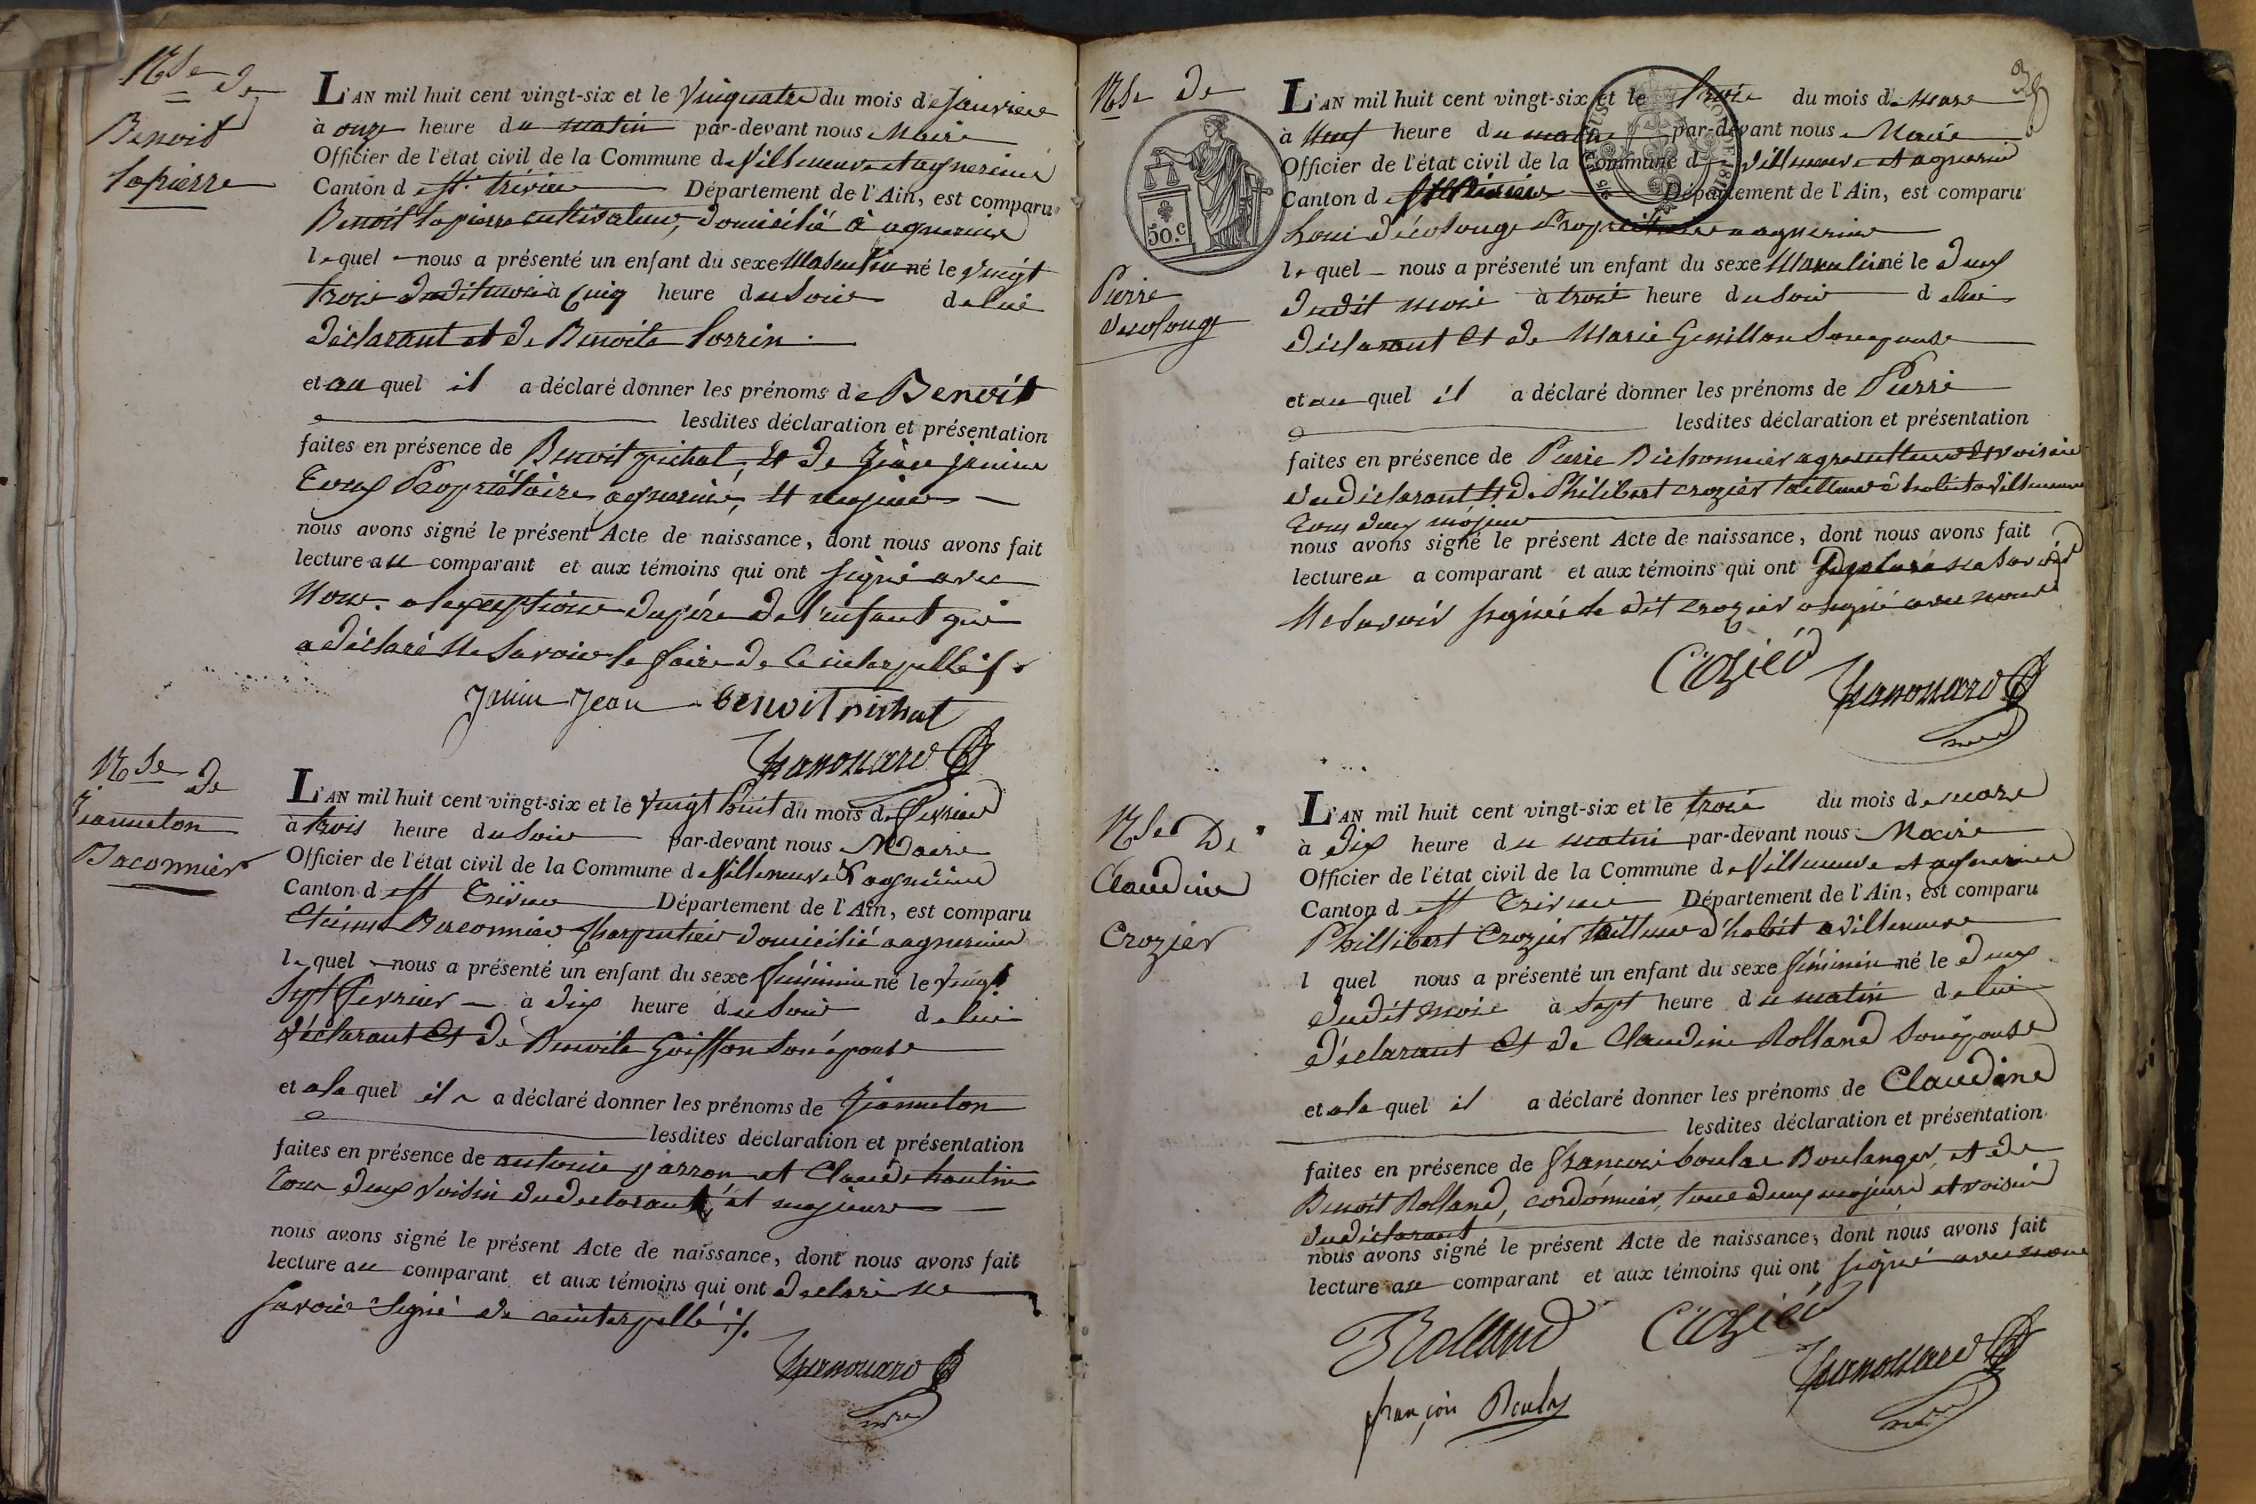 Nse de
Benoit
lapierre
L'AN mil huit cent vingt-six et le Vingquatre du mois de Janvier
à onze heure du matin par-devant nous Maire
Officier de l'état civil de la Commune de Villeneuve et agnereins
Canton de St. trivier Département de l'Ain, est comparu
Benoit lapierre cultivateur, domicilié à agnereins
lequel nous a présenté un enfant du sexe Masculin né le vingt
trois dudit mois à Cinq heure du Soir de lui
déclarant et de Benoite Sorrin
et au quel il a déclaré donner les prénoms de Benoit
lesdites déclaration et présentation
faites en présence de Benoit pichat, et de Jean janin
tous Propriétaire agnereins, et majeur
nous avons signé le présent Acte de naissance, dont nous avons fait
lecture au comparant et aux témoins qui ont signé avec
Nous. a lexception du père de l'enfant qui
a déclaré Ne Savoir le faire de ce interpellé
Janin Jean Benoit pichat
Nse de
Jeanneton
Baconnier
L'AN mil huit cent vingt-six et le vingt huit du mois de fevrier
à trois heure du Soir par-devant nous Maire
Officier de l'état civil de la Commune de Villeneuve & agnereins
Canton de St Trivier Département de l'Ain, est comparu
Etienne Baconnier Charpentier domicilié a agnereins
lequel nous a présenté un enfant du sexe féminin né le vingt
Sept fevrier à dix heure du Soir de lui
déclarant et de Benoite Goiffon Son épouse
et a la quel il a déclaré donner les prénoms de Jeanneton
lesdites déclaration et présentation
faites en présence de antoine parron et Claude hautin
tous deux voisin du declarant, et majeurs
nous avons signé le présent Acte de naissance, dont nous avons fait
lecture au comparant et aux témoins qui ont declaré ne
savoir signé de ce interpellé
39
Nse de
50.c
Pierre
decolonge
L'AN mil huit cent vingt-six et le trois du mois de mars
à Neuf heure du matin par-devant nous Maire
Officier de l'état civil de la Commune de villeneuve et agnereins
Canton de St Trivier Département de l'Ain, est comparu
Loui décolonge Propriétaire a agnereins
lequel nous a présenté un enfant du sexe Masculin né le deux
dudit mois à trois heure du Soir de lui
déclarant et de Marie Genillon Son epouse
et au quel il a déclaré donner les prénoms de Pierre
lesdites déclaration et présentation
faites en présence de Pierre Bichonnier agriculteur et voisin
du déclarant et de Philibert crozier tailleur d'habit a villeneuve
tous deux majeur
nous avons signé le présent Acte de naissance, dont nous avons fait
lecture a comparant et aux témoins qui ont
Ne Savoir signé le dit crozier a signé avec nous
Crozier
Nse De
Claudine
Crozier
L'AN mil huit cent vingt-six et le trois du mois de mars
à dix heure du matin par-devant nous Maire
Officier de l'état civil de la Commune de Villeneuve et agnereins
Canton de St Trivier Département de l'Ain, est comparu
Phillibert Crozier tailleur d'habit a villeneuve
l quel nous a présenté un enfant du sexe féminin né le deux
dudit mois à sept heure du matin de lui
déclarant et de Claudine Rolland Son épouse
et a la quel il a déclaré donner les prénoms de Claudine
lesdites déclaration et présentation
faites en présence de françois boulas Boulanger, et de
Benoit Rolland, cordonnier, tous deux majeurs et voisin
du déclarant
nous avons signé le présent Acte de naissance, dont nous avons fait
lecture au comparant et aux témoins qui ont signé avec nous
Rolland Crozier
françois Boulas